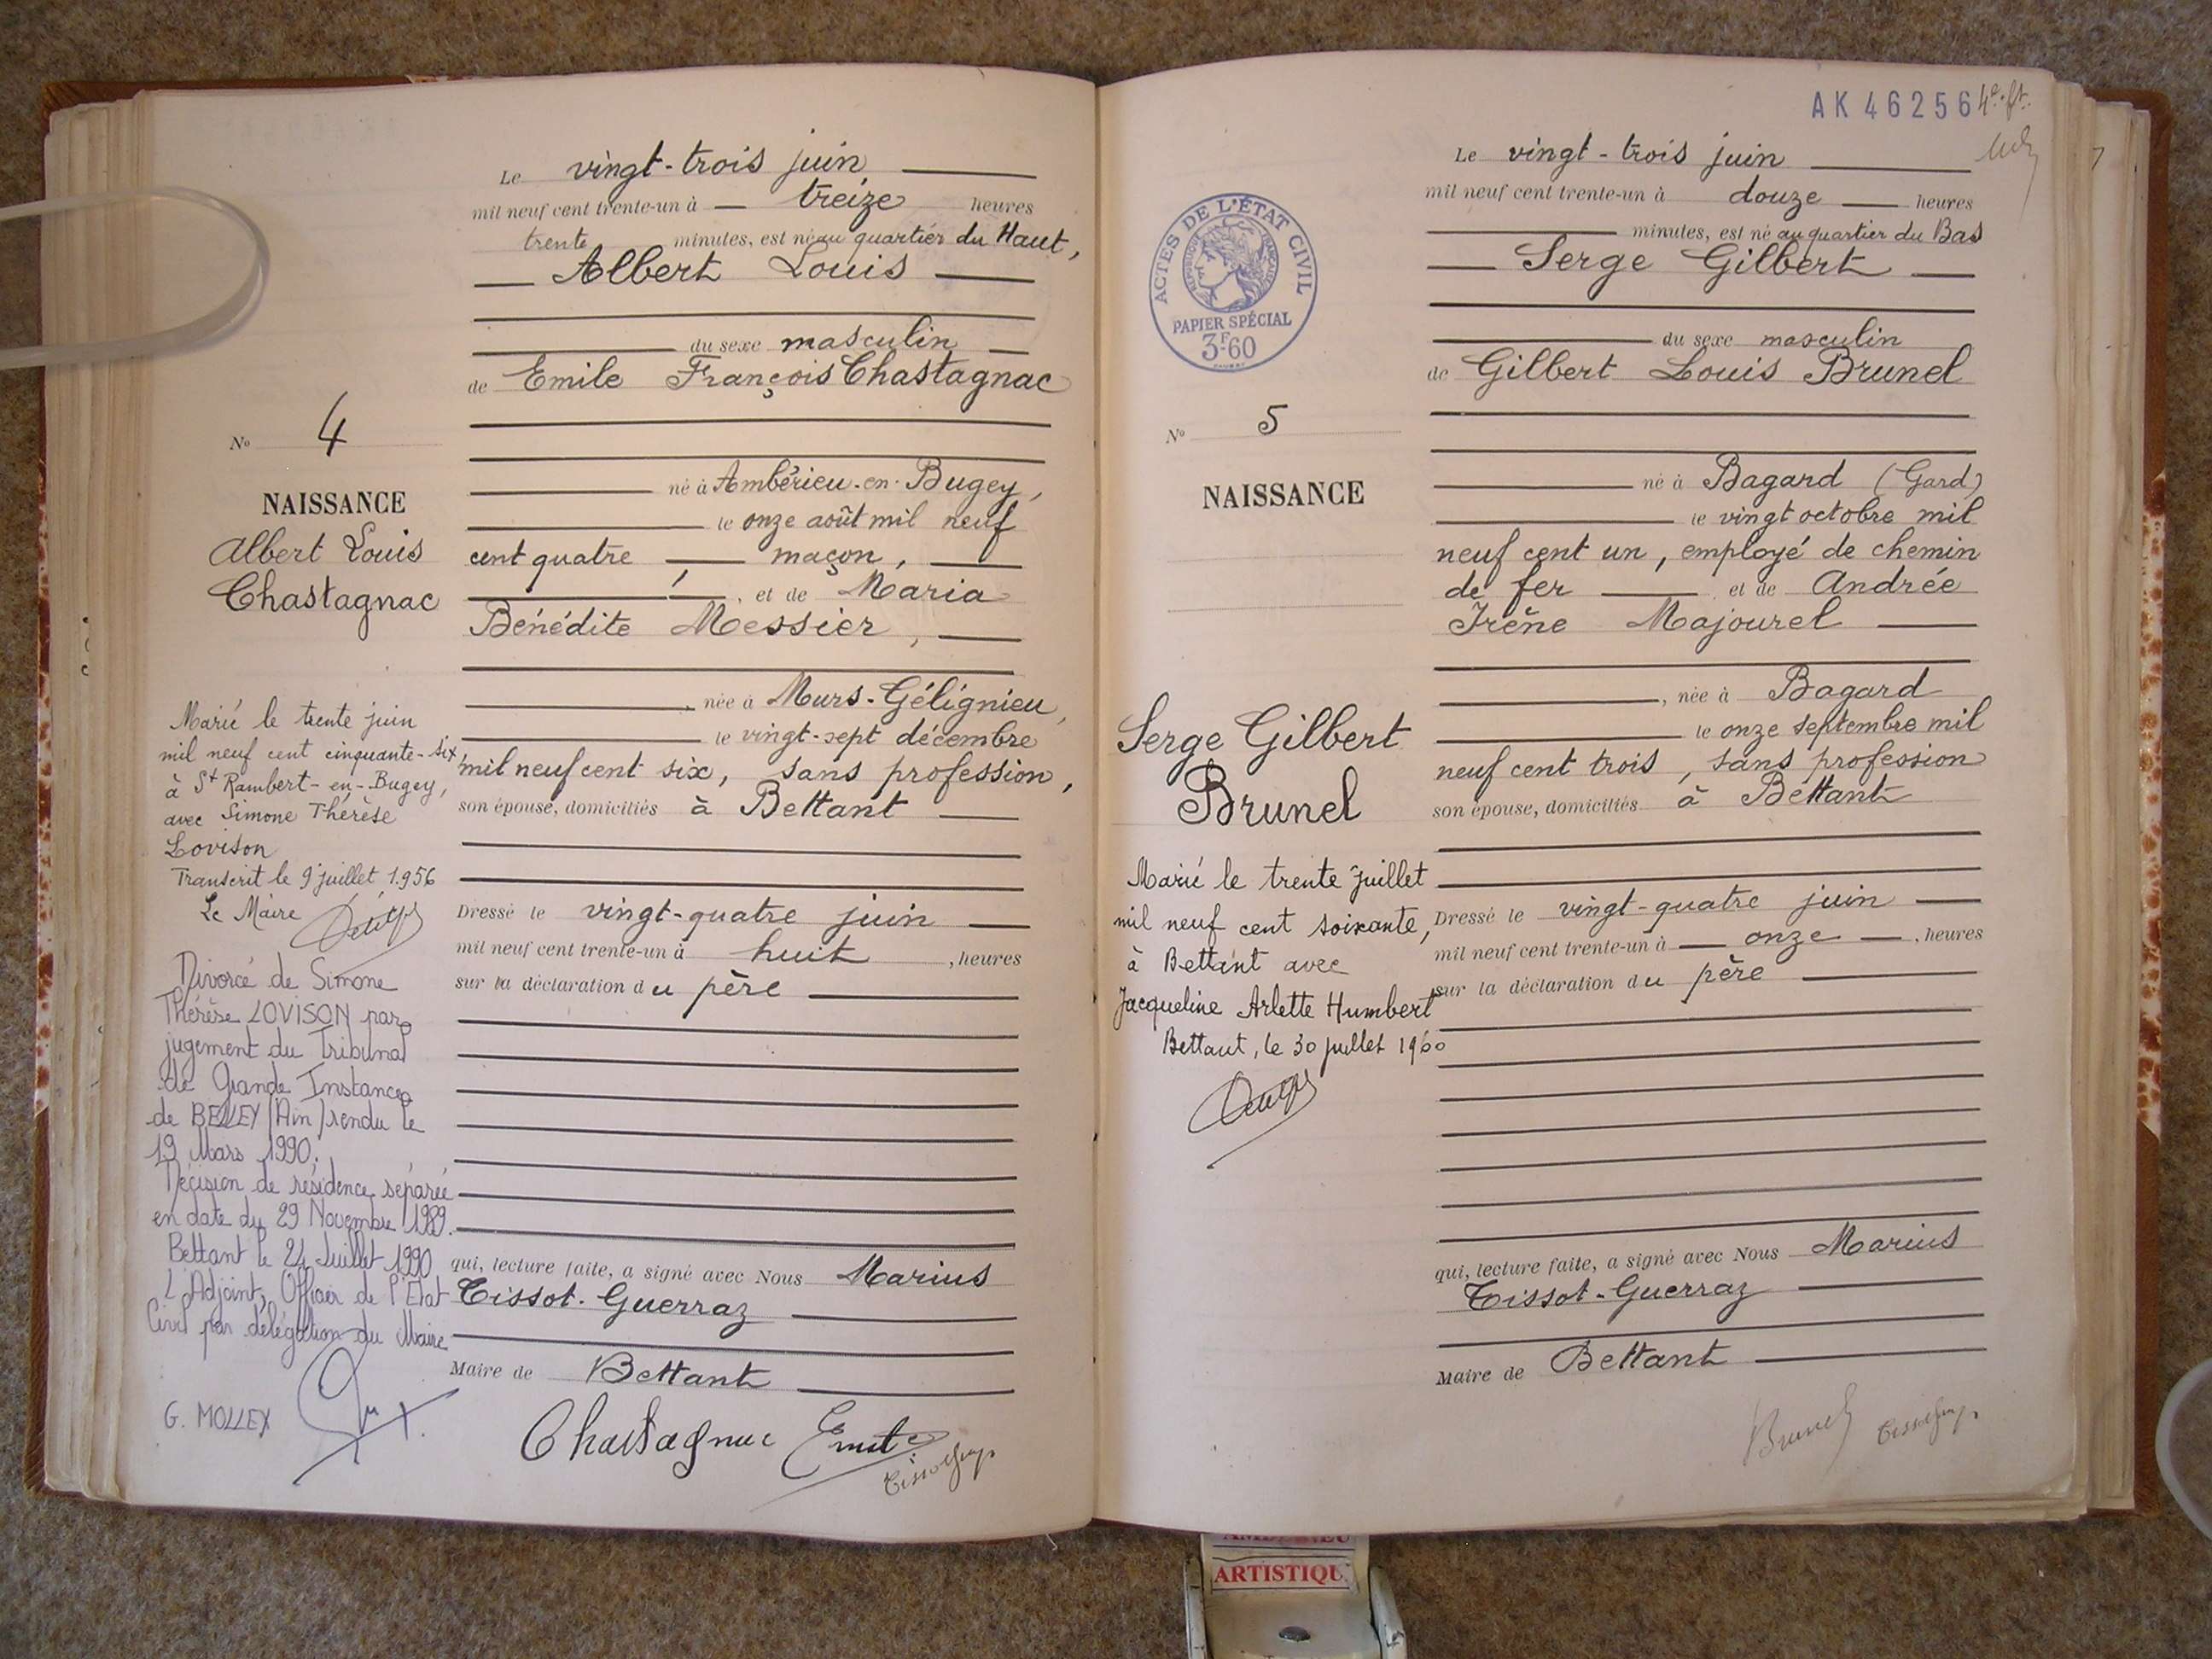 Le vingt-trois juin
mil neuf cent trente-un à treize heures
trente minutes, est né au quartier du Haut,
Albert Louis
du sexe masculin
de Emile François Chastagnac
né à Ambérieu-en-Bugey,
le onze août mil neuf
cent quatre maçon,
, et de Maria
Bénédite Messier,
, née à Murs-Gélignieu,
le vingt-sept décembre
mil neuf cent six, sans profession,
son épouse, domiciliés à Bettant
Dressé le vingt-quatre juin
mil neuf cent trente-un à huit, heures
sur la déclaration du père
qui, lecture faite, a signé avec Nous Marius
Tissot-Guerraz
Maire de Bettant
Chastagnac Emile
No 4
NAISSANCE
Albert Louis
Chastagnac
Marié le trente juin
mil neuf cent cinquante-six,
à St Rambert-en-Bugey,
avec Simone Thérèse
Lovison
Transcrit le 9 juillet 1956
Le Maire
Divorcé de Simone
Thérèse LOVISON par
jugement du Tribunal
de Grande Instance
de BELLEY (Ain) rendu le
19 Mars 1990.
Décision de résidence séparée
en date du 29 Novembre 1989.
Bettant le 24 Juillet 1990
L'Adjoint, Officier de l'Etat
Civil par délégation du Maire
G. MOLLEX
AK 46256
Le vingt-trois juin
mil neuf cent trente-un à douze heures
minutes, est né au quartier du Bas
Serge Gilbert
du sexe masculin
de Gilbert Louis Brunel
né à Bagard (Gard)
le vingt octobre mil
neuf cent un, employé de chemin
de fer et de Andrée
Irène Majourel
, née à Bagard
le onze septembre mil
neuf cent trois, sans profession
son épouse, domiciliés à Bettant
Dressé le vingt-quatre juin
mil neuf cent trente-un à onze, heures
sur la déclaration du père
qui, lecture faite, a signé avec Nous Marius
Tissot-Guerraz
Maire de Bettant
Brunel
ACTES DE L'ÉTAT CIVIL
RÉPUBLIQUE FRANÇAISE
PAPIER SPÉCIAL
3F60
No 5
NAISSANCE
Serge Gilbert
Brunel
Marié le trente juillet
mil neuf cent soixante,
à Bettant avec
Jacqueline Arlette Humbert
Bettant, le 30 juillet 1960
7
ARTISTIQU